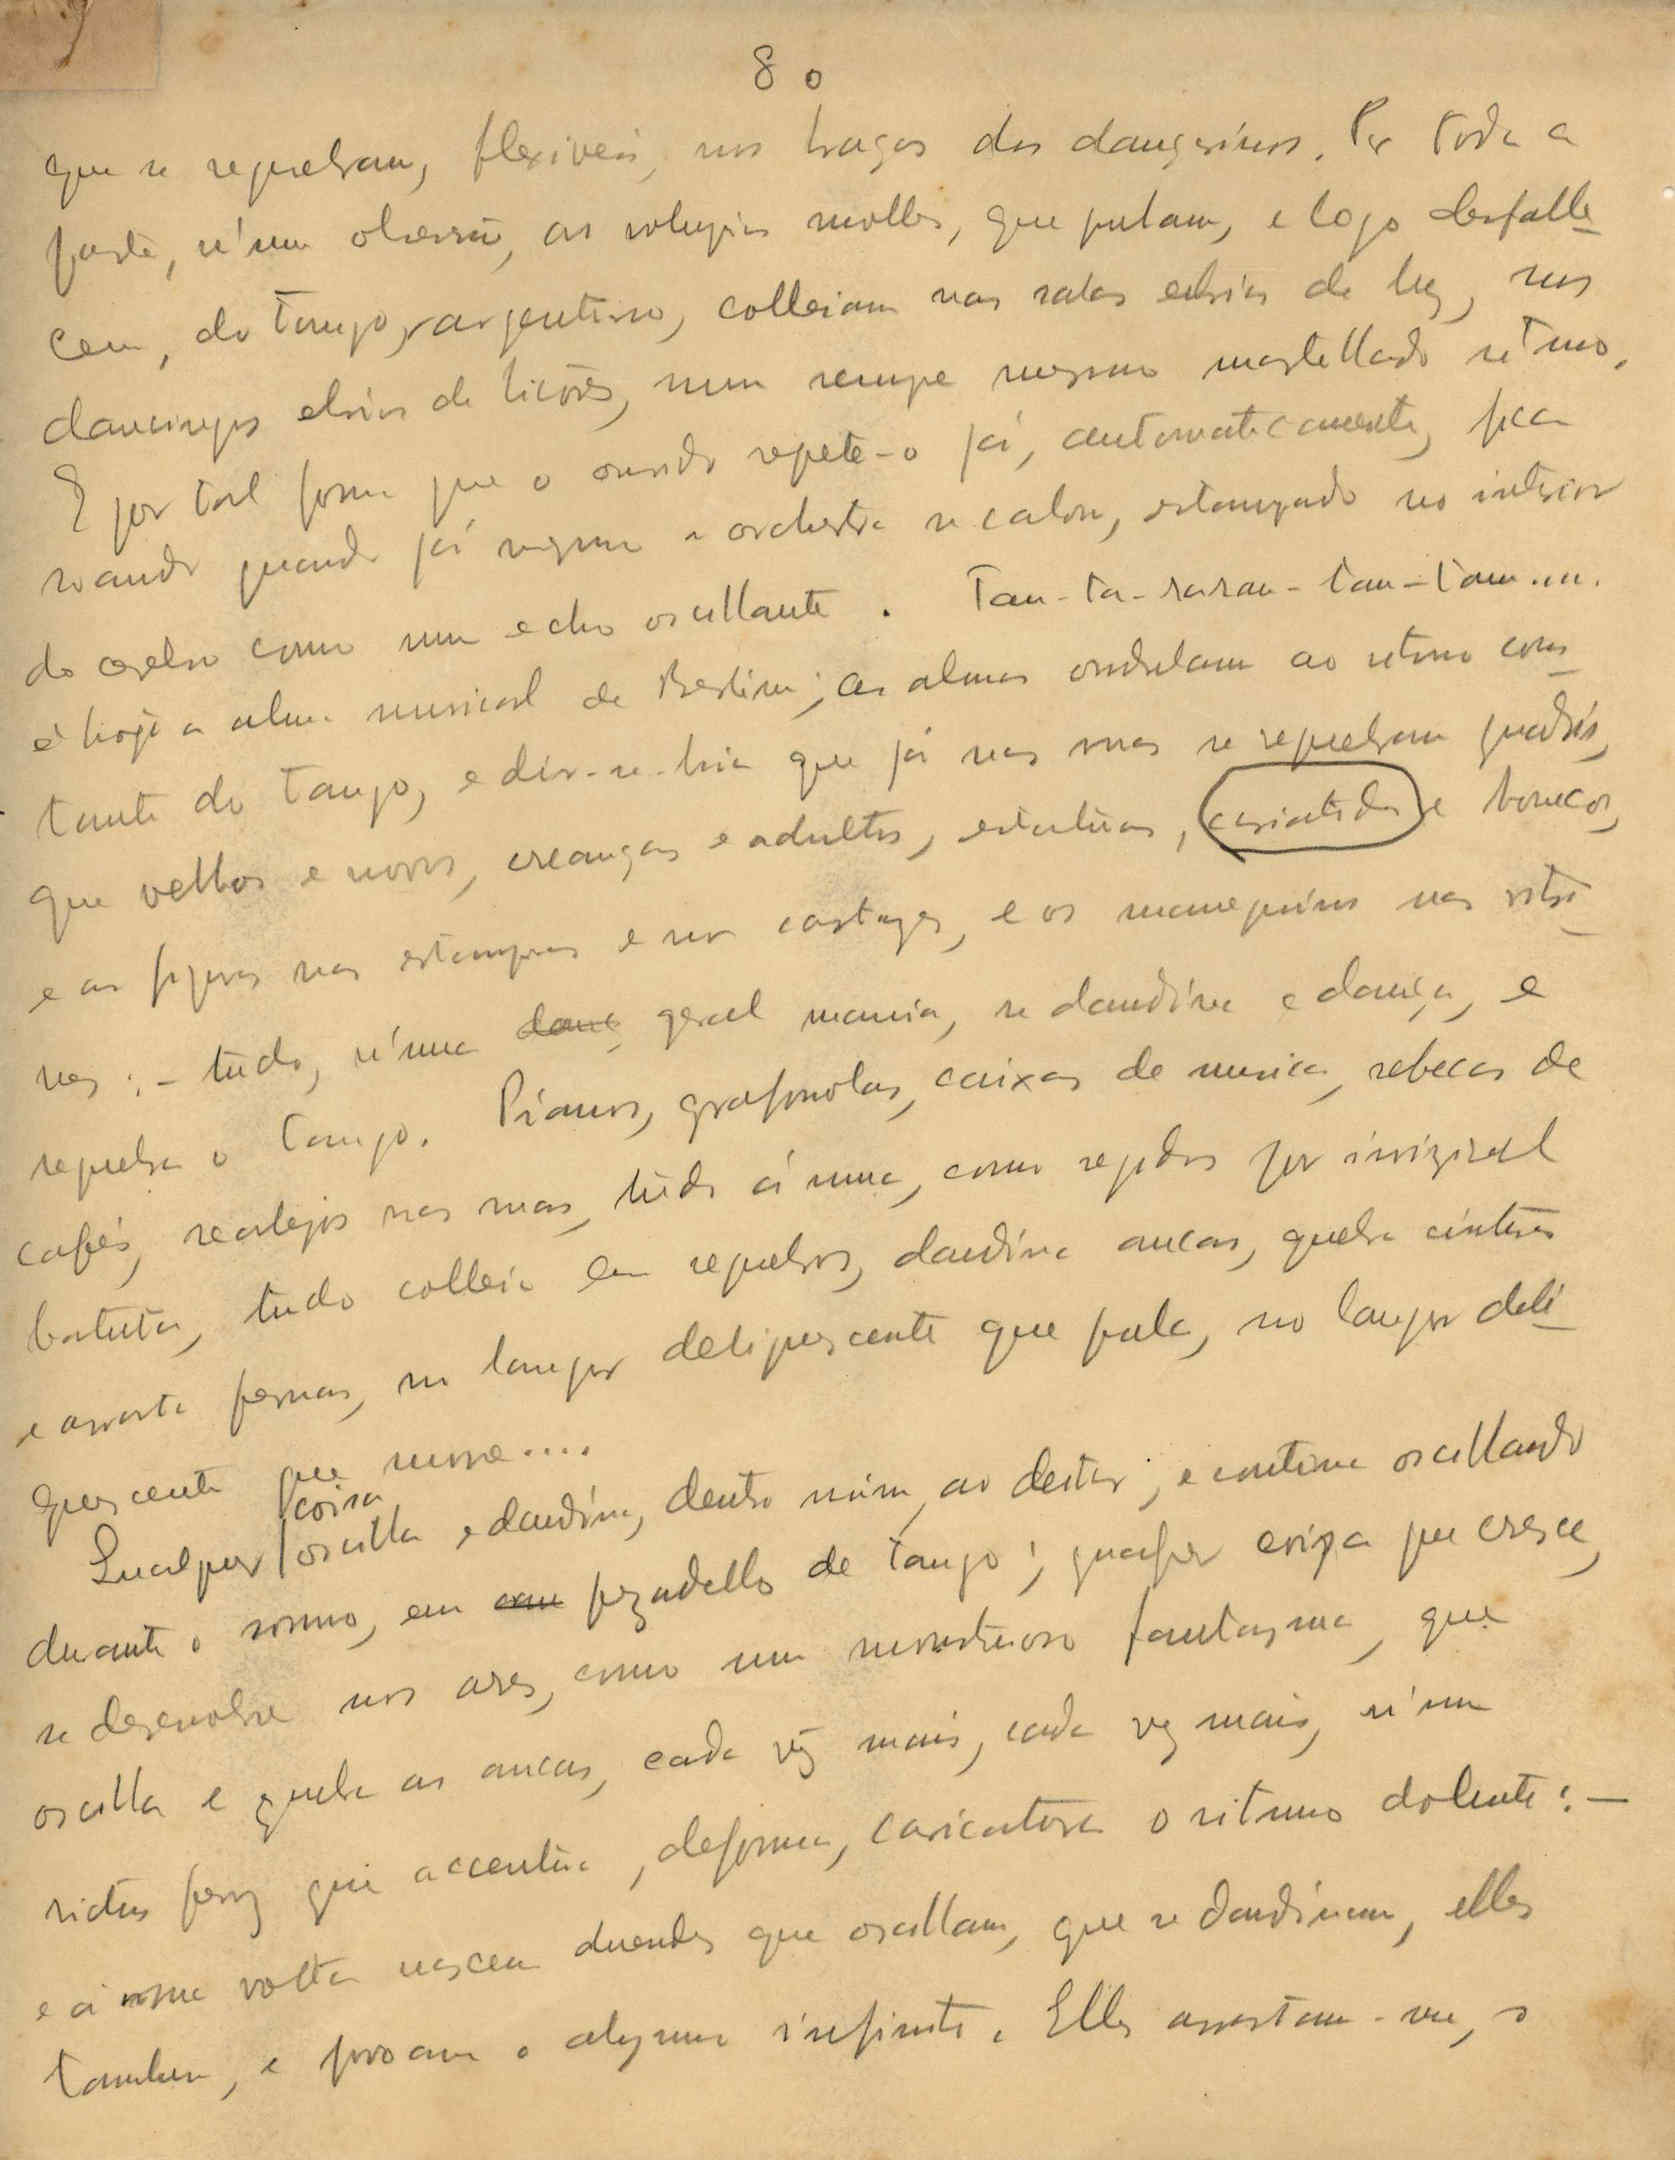 8 o
que se requebram, flexiveis, nos braços dos dançarinos. Por toda a
parte, n'um as volupias molles, que pulam, e logo desfalle-
cem, do tango argentino, colleiam nas salas ebrias de luz, nos
dancings ebrios de licôres, num sempre mesmo martellado ritmo.
E por tal forma que o ouvido repete-o já, automaticamente, fica
soando quando já mesmo a orchestra se calou, estampado no interior
do cerebro como um echo oscillante. Tan-ta-raran-tan-tan....
é hoje a alma musical de Berlim; as almas ondulam ao ritmo cons-
tante do tango, e dir-se-hia que já nas ruas se requebram quadris,
que velhos e novos, creanças e adultos, estatuas, cariatides e bonecos,
e as figuras nas estampas e nos cartazes, e os manequins nas vitri-
nes: - tudo, n'uma danç geral mania, se dandina e dança, e
requebra o tango. Pianos, grafonolas, caixas de musica, rebecas de
cafés, realejos nas ruas, tudo á uma, como regidos por invizivel
batuta, tudo colleia em requebros, dandina ancas, quebra cinturas
e arrasta pernas, no langor deliquescente que pula, no langor deli-
quescente que morre....
Qualquer coisa oscilla e dandina, dentro mim, ao deitar; e continua oscillando
durante o somno, em pezadellos de tango; qualquer coiza que cresce,
se dezenvolve nos ares, como um monstruoso fantasma, que
oscilla e quebra as ancas, cada vez mais, cada vez mais, n'um
rictus feroz que accentúa, deforma, caricatura o ritmo dolente: -
e á volta nascem duendes que oscillam, que se dandinam, elles
tambem, e povoam o infinito. Elles arrastam-me, o